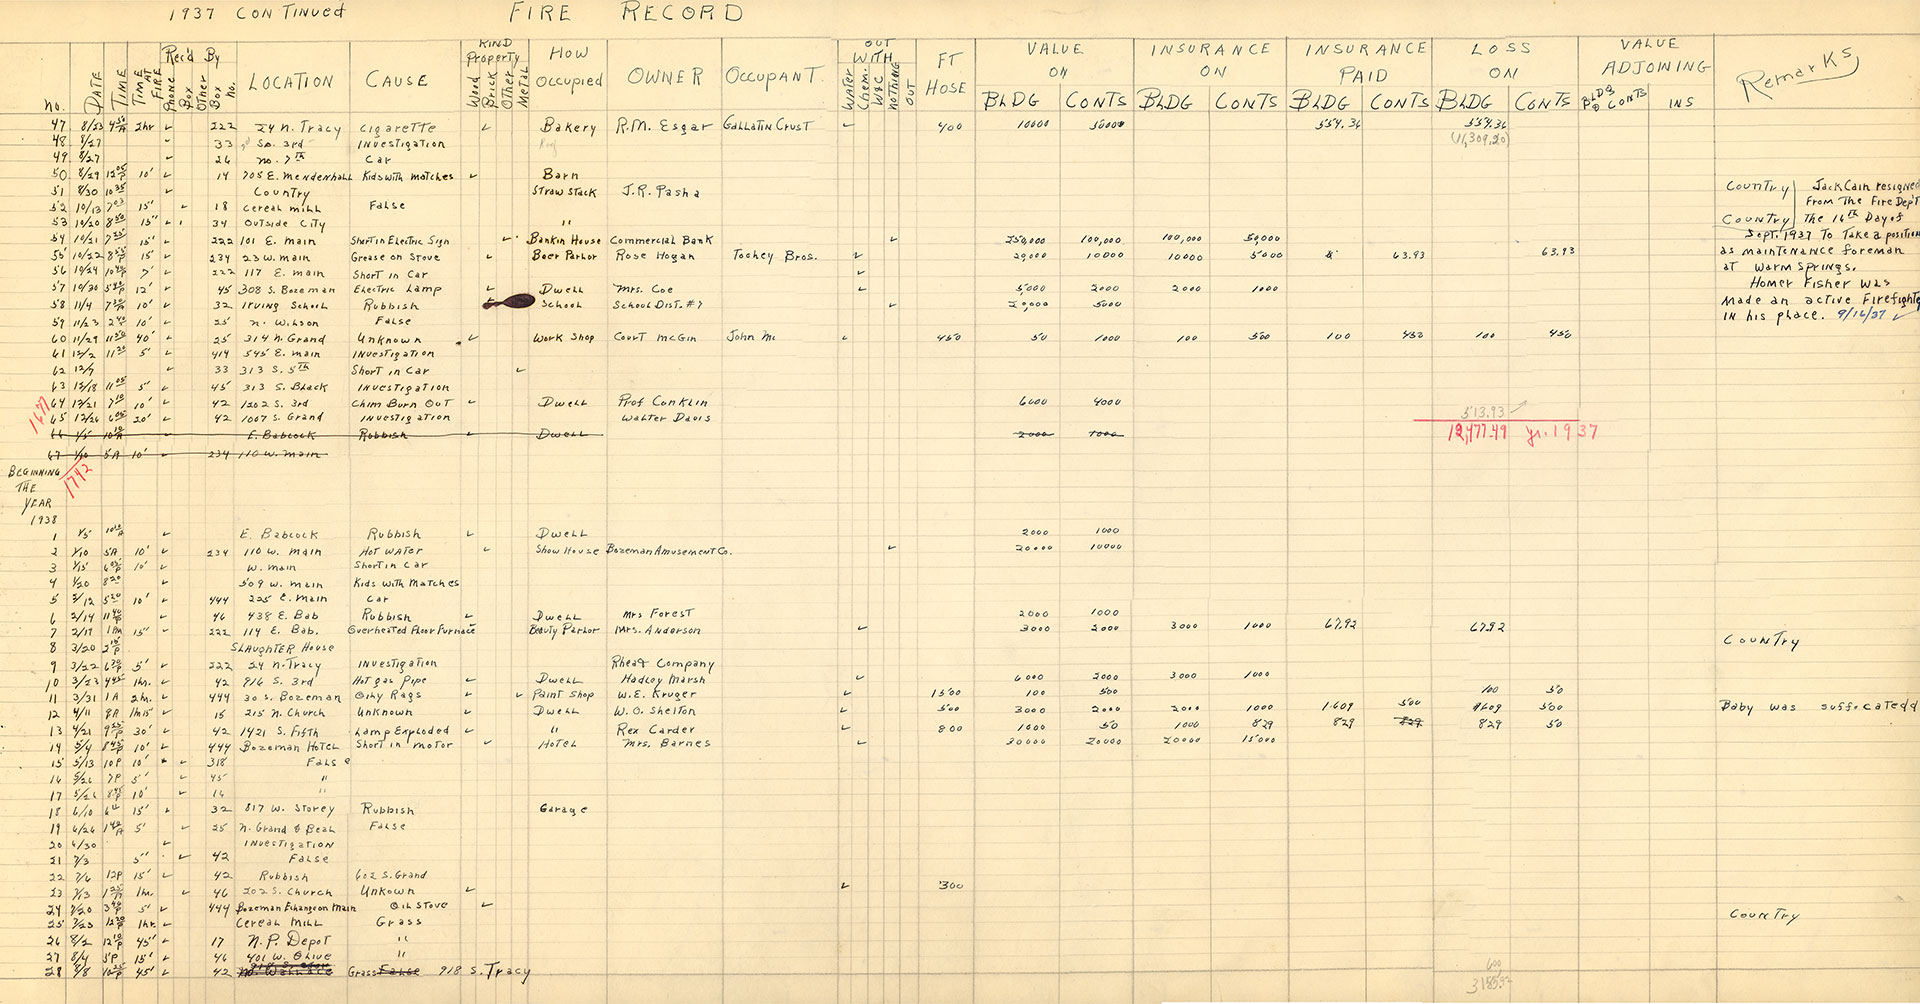 1937 Continued FIRE RECORD
no. DATE TIME TIME AT FIRE Rec'd By Phone Box Other Box no. LOCATION CAUSE KIND Property Wood Brick Other Metal How Occupied OWNER OCCUPANT. OUT WITH Water Chem. W&C nothing OUT FT HOSE VALUE ON BLDG CONTS INSURANCE ON BLDG CONTS INSURANCE PAID BLDG CONTS LOSS ON BLDG CONTS VALUE ADJOINING BLDG & CONTS INS Remarks
47 8/23 4 50 A 2hr ✓ 222 24 n. Tracy Cigarette ✓ Bakery R.M. Esgar Gallatin Crust ✓ 400 10000 50000 554.36 554.36
48 8/27 ✓ 33 So. 3rd Investigation (11,309.20)
49 8/27 ✓ 26 no. 7th Car
50 8/29 12 05 P 10' ✓ 14 705 E. Mendenhall Kids with matches ✓ Barn
51 8/30 10 35 ✓ Country Straw Stack J.R. Pasha Country
52 10/13 7 03 15" ✓ 18 Cereal mill False
53 10/20 8 50 15" ✓ 34 Outside City " Country
54 10/21 7 25 15" ✓ 222 101 E. main Short in Electric Sign ✓ Bankin House Commercial Bank ✓ 250,000 100,000 100,000 50,000
55 10/22 8 55 15' ✓ 234 23 W. main Grease on Stove ✓ Beer Parlor Rose Hogan Tochey Bros. ✓ 20000 10000 10000 5000 63.93 63.93
56 10/24 10 45 7' ✓ 222 117 E. main Short in Car ✓
57 10/30 12' ✓ 45 308 S. Bozeman Electric Lamp ✓ Dwell Mrs. Coe ✓ 5,000 2000 2000 1000
58 11/4 7 30 10' ✓ 32 Irving School Rubbish School School Dist. #7 ✓ 20,000 5000
59 11/23 2 40 10' ✓ 25 n. Wilson False
60 11/29 11 50 40' ✓ 25 314 n. Grand Unknown ✓ Work Shop Court McGin John Mc ✓ 450 50 1000 100 500 100 450 100 450
61 12/2 11 20 5' ✓ 414 545 E. main Investigation
62 12/7 ✓ 33 313 S. 5th Short in Car ✓
63 12/18 11 05 5" ✓ 45 313 S. Black Investigation
64 12/21 7 10 10' ✓ 42 1202 S. 3rd Chim Burn Out ✓ Dwell Prof Conklin 6000 4000
65 12/26 6 05 20' ✓ 42 1007 S. Grand Investigation Walter Davis 513.93 ✓
1677
66 1/5 10 10 A ✓ E. Babcock Rubbish ✓ Dwell 2000 1000 12,477.49 yr. 1937
67 1/10 5A 10' ✓ 234 110 W. main
1742
Jack Cain resigned
From The Fire Dep't
The 16th Day of
Sept. 1937 To Take a position
as maintenance foreman
at Warm Springs.
Homer Fisher was
Made an active Firefighte
in his place. 9/16/37 ✓
BEGINNING
THE
YEAR
1938
1 1/5 10 10 A ✓ E. Babcock Rubbish ✓ Dwell 2000 1000
2 1/10 5A 10' ✓ 234 110 W. main Hot Water ✓ Show House Bozeman Amusement Co. ✓ 20000 10000
3 1/15 10' ✓ W. main Short in Car
4 1/20 8 20 ✓ 509 W. main Kids with Matches
5 2/12 5 20 10' ✓ 444 225 E. main Car
6 2/14 11 40 ✓ 46 438 E. Bab Rubbish ✓ Dwell Mrs Forest 2000 1000
7 2/17 1 PM 15" ✓ 222 114 E. Bab. Overheated Floor Furnace Beauty Parlor Mrs. Anderson ✓ 3000 2000 3000 1000 67.92 67.92
8 3/20 Slaughter House Country
9 3/22 5' ✓ 222 24 n. Tracy Investigation Rhead Company
10 3/23 4 45 1hr. ✓ 42 916 S. 3rd Hot gas Pipe ✓ Dwell Hadley Marsh ✓ 6000 2000 3000 1000
11 3/31 1 A 2hr. ✓ 444 30 S. Bozeman Oily Rags ✓ ✓ Paint Shop W.E. Kruger ✓ 1500 100 500 100 50
12 4/11 8A 1h15' ✓ 15 215 n. Church Unknown ✓ Dwell W.O. Shelton ✓ 500 3000 2000 2000 1000 1,609 500 1609 500 Baby was suffocatedd
13 4/21 30' ✓ 42 1421 S. Fifth Lamp Exploded ✓ " Rex Carder ✓ 800 1000 50 1000 829 829 829 829 50
14 5/4 10' ✓ 444 Bozeman Hotel Short in motor ✓ Hotel Mrs. Barnes ✓ 30000 20000 20000 15000
15 5/13 10P 10' ✓ 318 False
16 5/26 7P 5' ✓ 45 "
17 5/26 10' ✓ 16 "
18 6/10 15' ✓ 32 817 W. Storey Rubbish Garage
19 6/26 5' ✓ 25 n. Grand & Beal False
20 6/30 Investigation
21 7/3 5" ✓ 42 False
22 7/6 12P 15' ✓ 42 Rubbish 602 S. Grand
23 7/13 1hr ✓ 46 202 S. Church Unkown ✓ ✓ 300
24 7/20 5" ✓ 444 Bozeman Exhange on Main Oil Stove ✓
25 7/23 1hr. ✓ Cereal Mill Grass Country
26 8/2 45" ✓ 17 N.P. Depot "
27 8/4 5P 15" ✓ 46 401 W. Olive "
28 8/8 45' ✓ 42 Grass False 918 S. Tracy
600